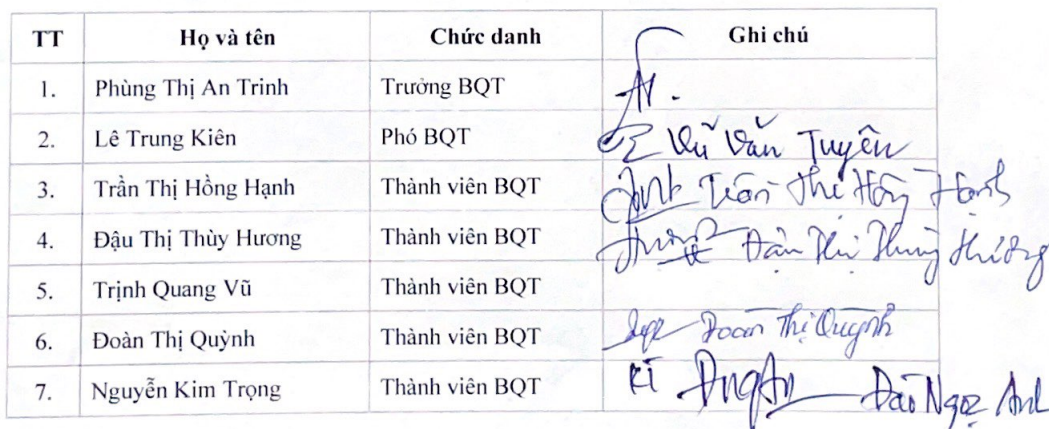 TT Họ và tên Chức danh Ghi chú
1. Phùng Thị An Trinh Trưởng BQT
2. Lê Trung Kiên Phó BQT Vũ Văn Tuyên
3. Trần Thị Hồng Hạnh Thành viên BQT Trần Thị Hồng Hạnh
4. Đậu Thị Thùy Hương Thành viên BQT Đậu Thị Thùy Hương
5. Trịnh Quang Vũ Thành viên BQT
6. Đoàn Thị Quỳnh Thành viên BQT Đoàn Thị Quỳnh
7. Nguyễn Kim Trọng Thành viên BQT Kí Đào Ngọc Anh